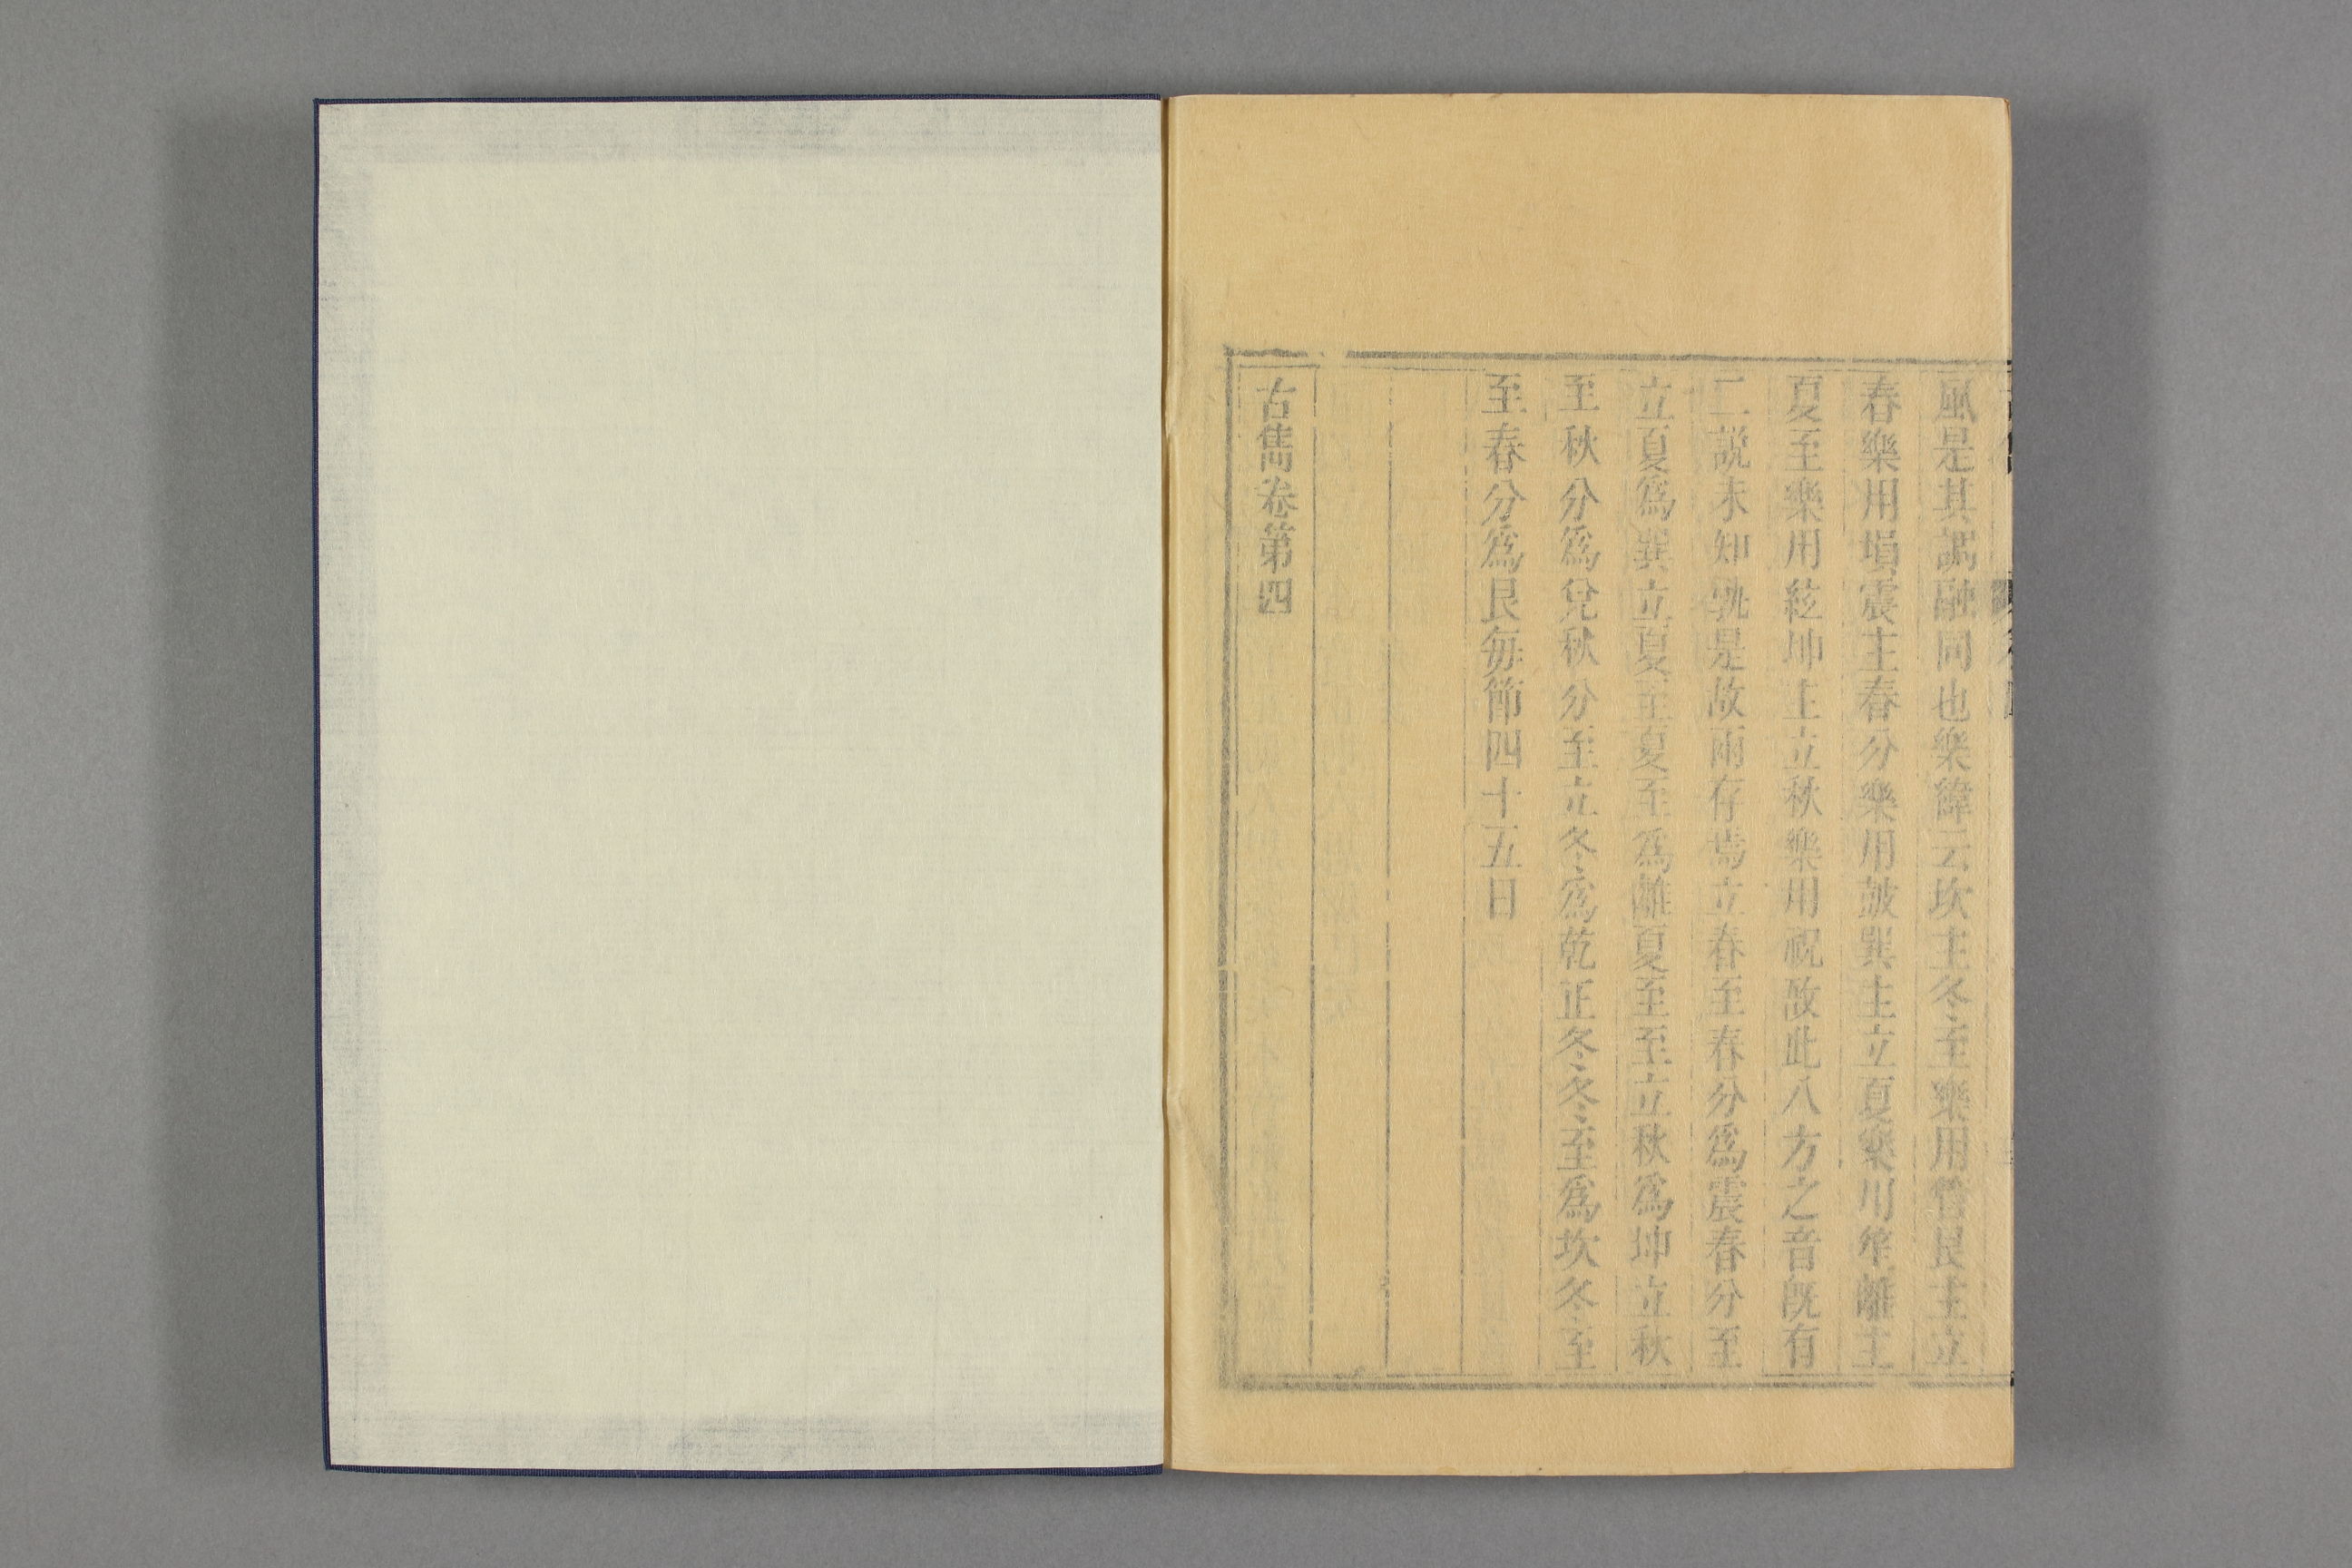 風是其調融同也樂緯云坎主冬至樂用管艮主立
春樂用塤震主春分樂用鼓巽主立夏樂用笙離主
夏至樂用絃坤主立秋樂用祝故此八方之音旣有
二説未知孰是故兩存焉立春至春分爲震春分至
立夏爲巽立夏至夏至爲離夏至至立秋爲坤立秋
至秋分爲兌秋分至立冬爲乾正冬冬至爲坎冬至
至春分爲艮每節四十五日
古雋卷第四